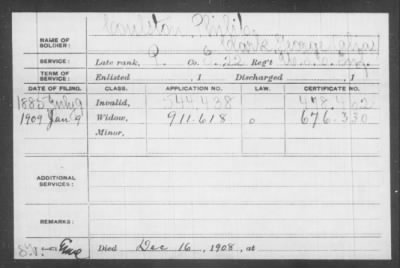 NAME OF SOLDIER:
Clark, George (alias)
SERVICE: Late rank, P. Co. 22 Reg't
TERM OF SERVICE: Enlisted , 1 Discharged , 1
DATE OF FILING. CLASS. APPLICATION NO. LAW. CERTIFICATE NO.
1885 July 9 Invalid, 544,438 478,462
1909 Jan 9 Widow, 911.618 o 676.330
Minor,
ADDITIONAL SERVICES:
REMARKS:
Died Dec 16, 1908, at